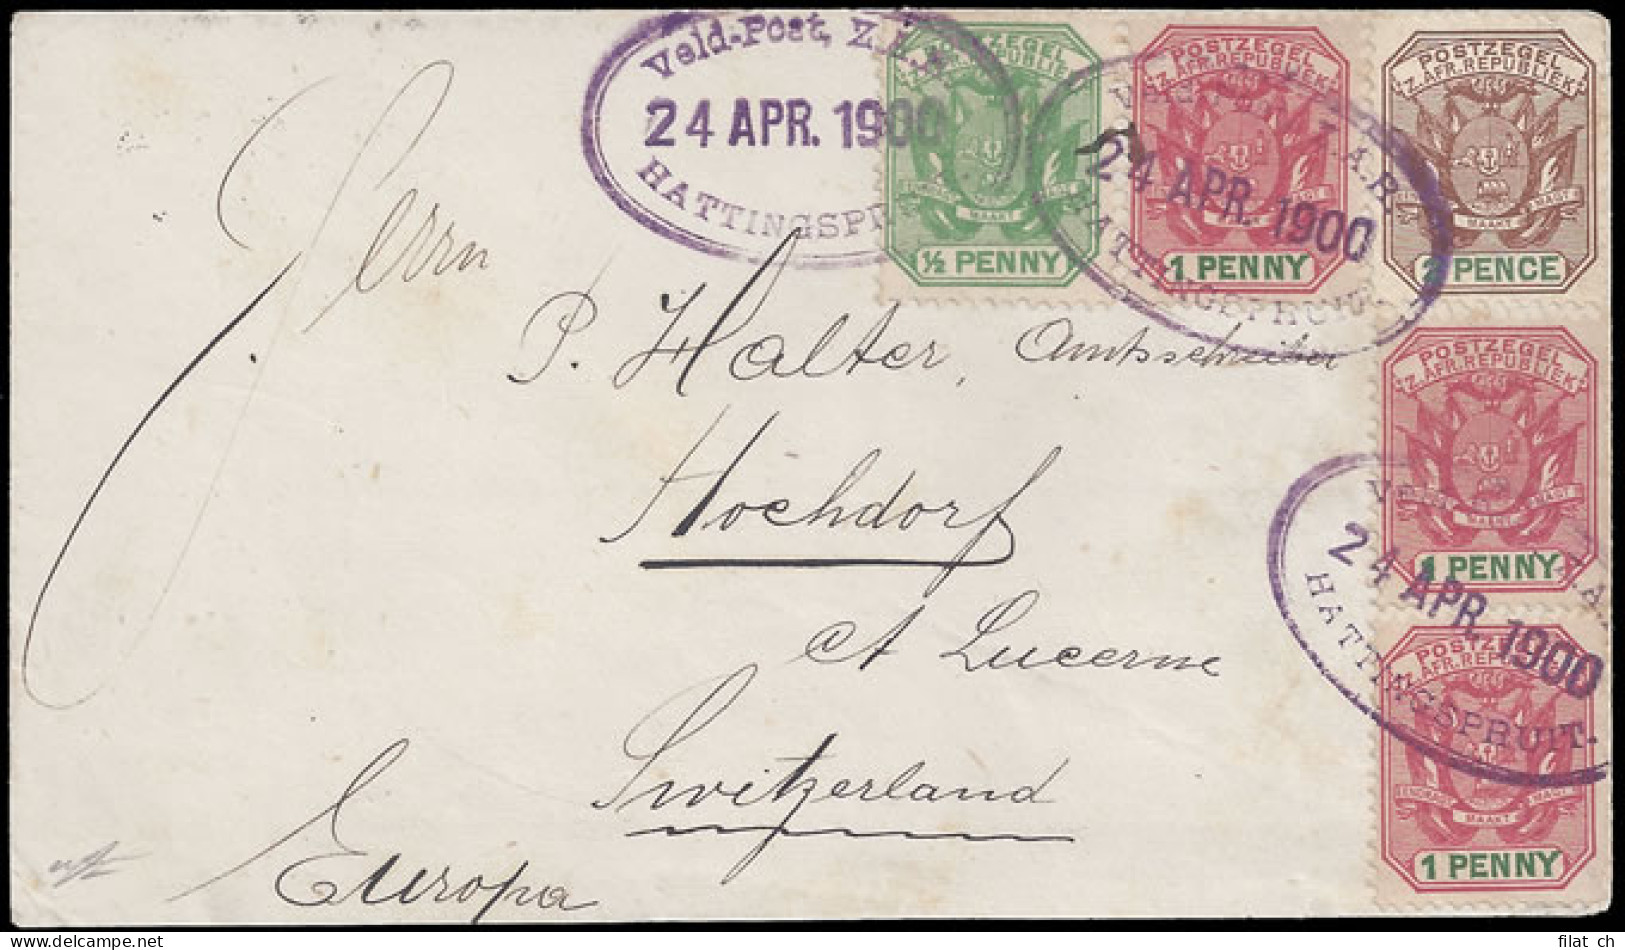 Veld-Post, Z.A.R.
24 APR. 1900
HATTINGSPR
POSTZEGEL
Z. AFR. REPUBLIEK
MAAKT
½ PENNY
POSTZEGEL
Z. AFR. REPUBLIEK
1 PENNY
24 APR. 1900
HATTINGSPRUIT.
POSTZEGEL
Z. AFR. REPUBLIEK
MAAKT
2 PENCE
Herrn
P. Halter, Amtsschreiber
Hochdorf
ct Lucerne
Switzerland
Europa
POSTZEGEL
Z. AFR. REPUBLIEK
MAAKT
1 PENNY
24 APR. 1900
HATTINGSPRUIT.
POSTZEGEL
Z. AFR. REPUBLIEK
EENDRAGT MAAKT MAGT
1 PENNY
filat ch